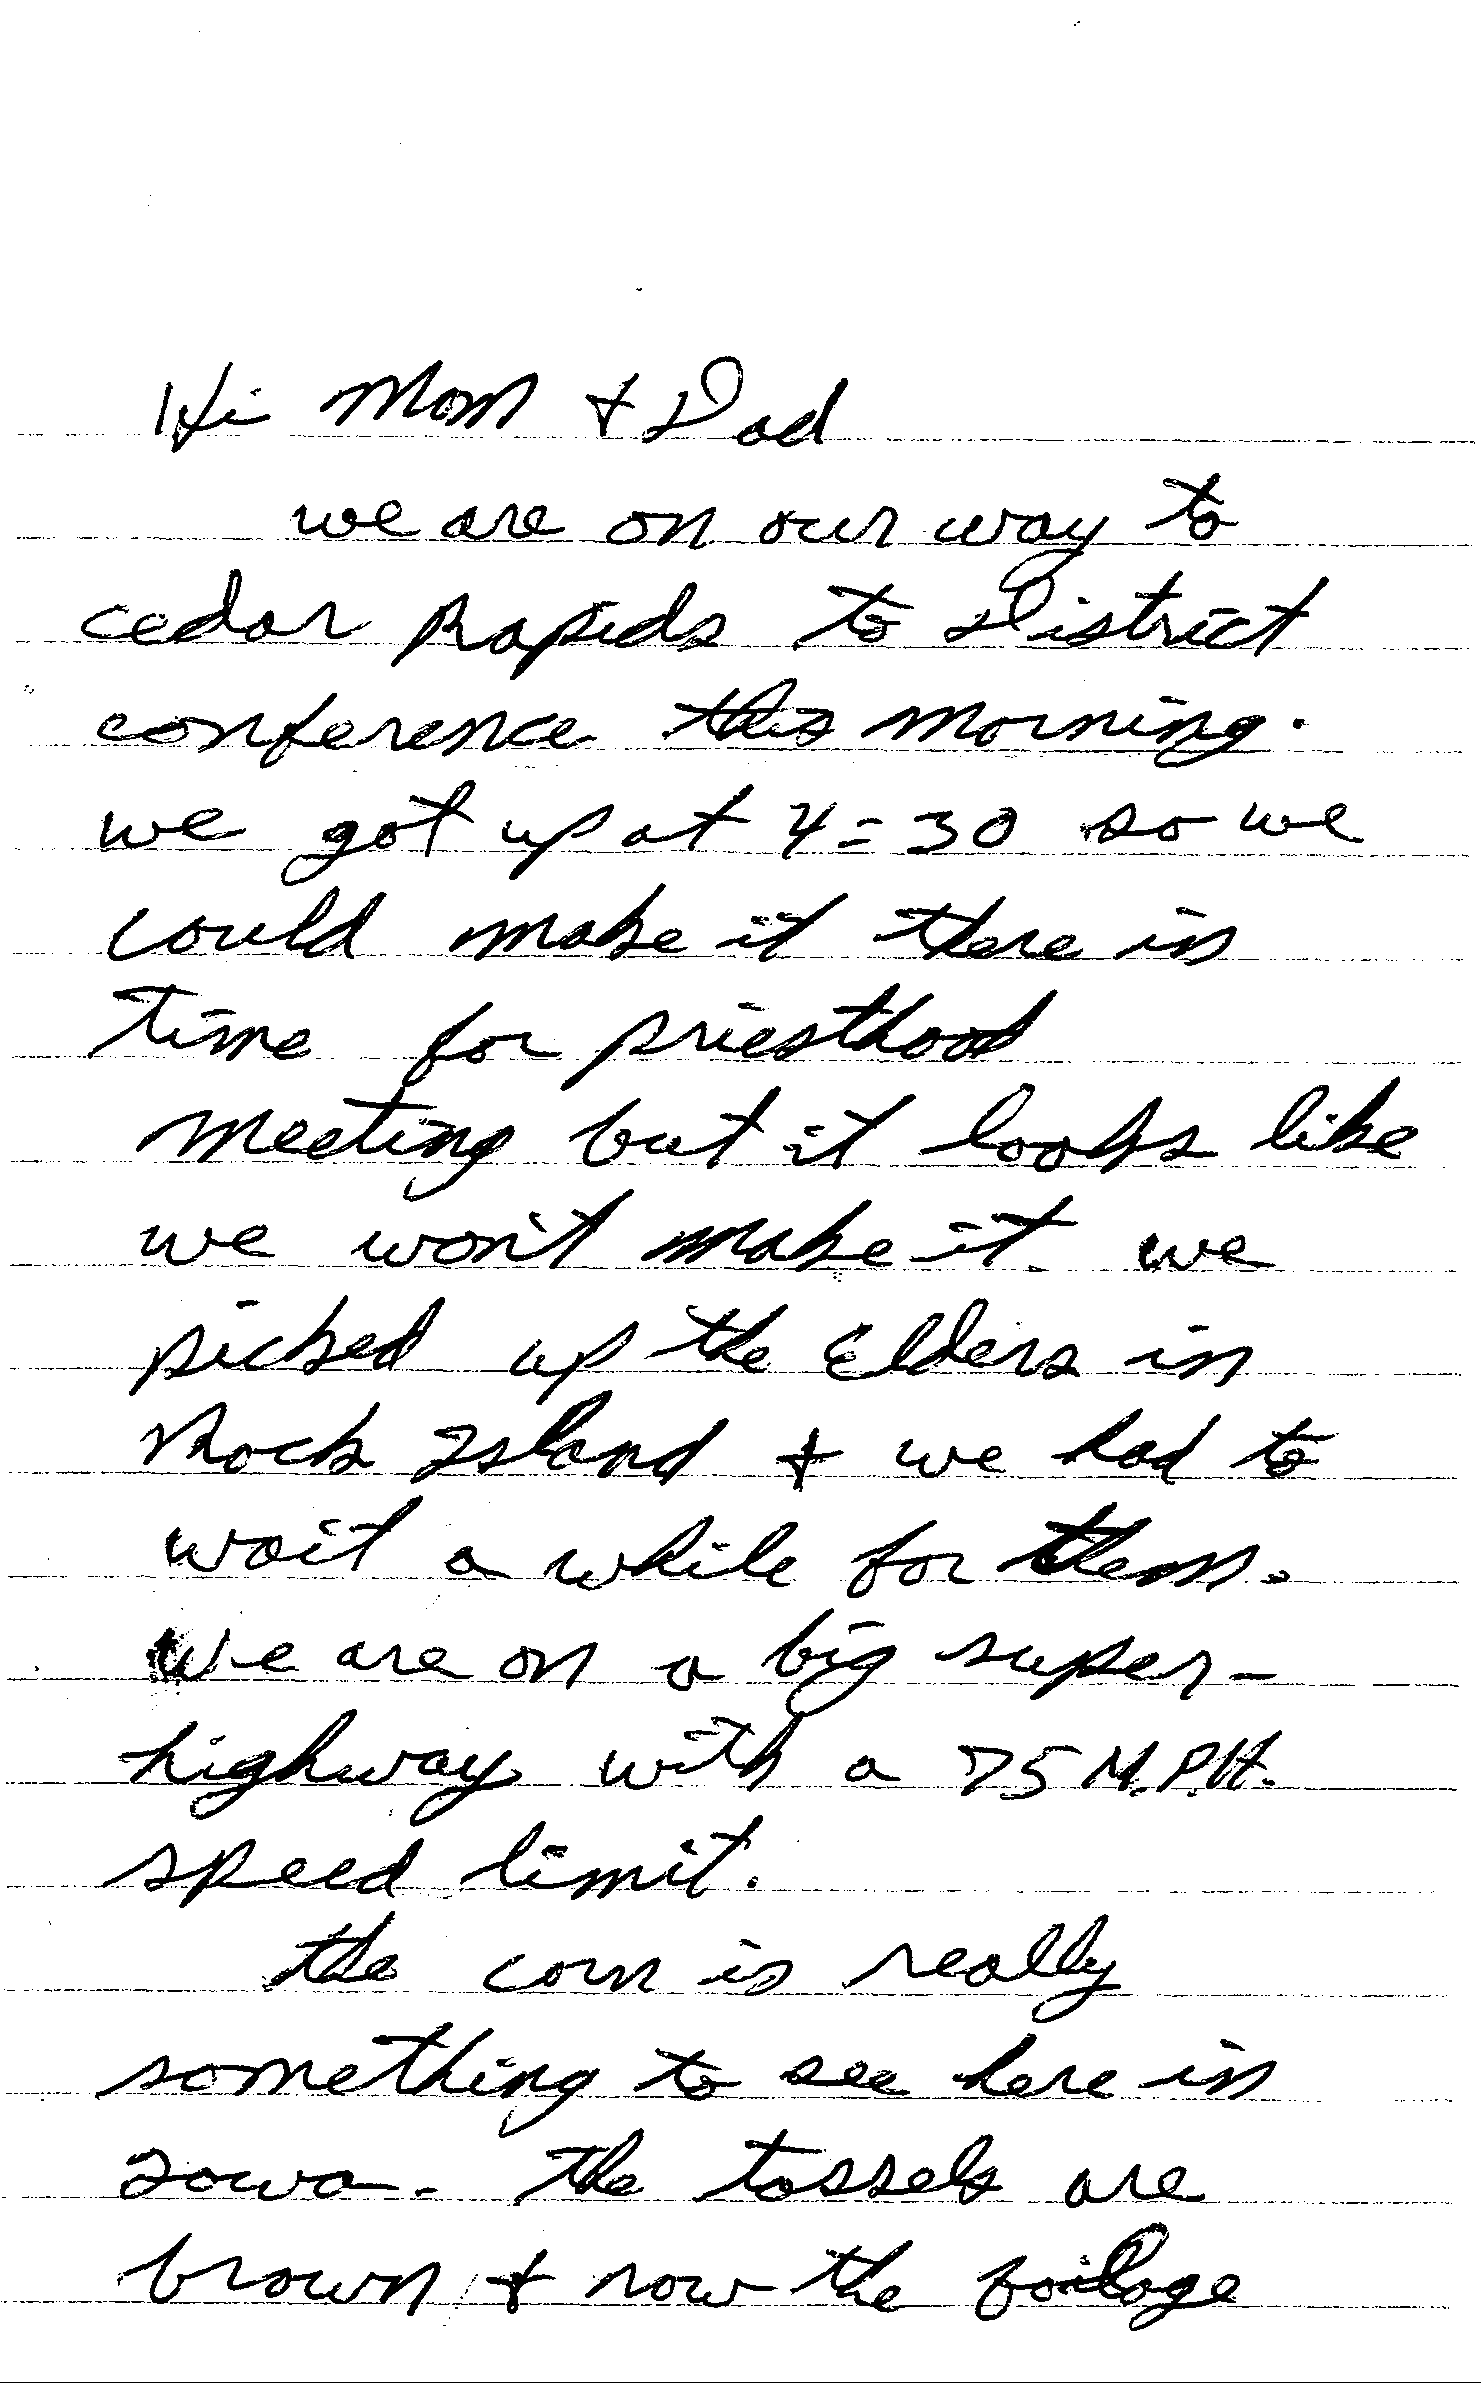 Hi Mom & Dad
we are on our way to
cedar Rapids to District
conference this morning.
we got up at 4:30 so we
could make it there in
time for priesthood
meeting but it looks like
we won't make it. we
picked up the Elders in
Rock Island & we had to
wait a while for them.
We are on a big super-
highway with a 75 M.P.H.
speed limit.
the corn is really
something to see here in
Iowa. the tassels are
brown & now the foilage